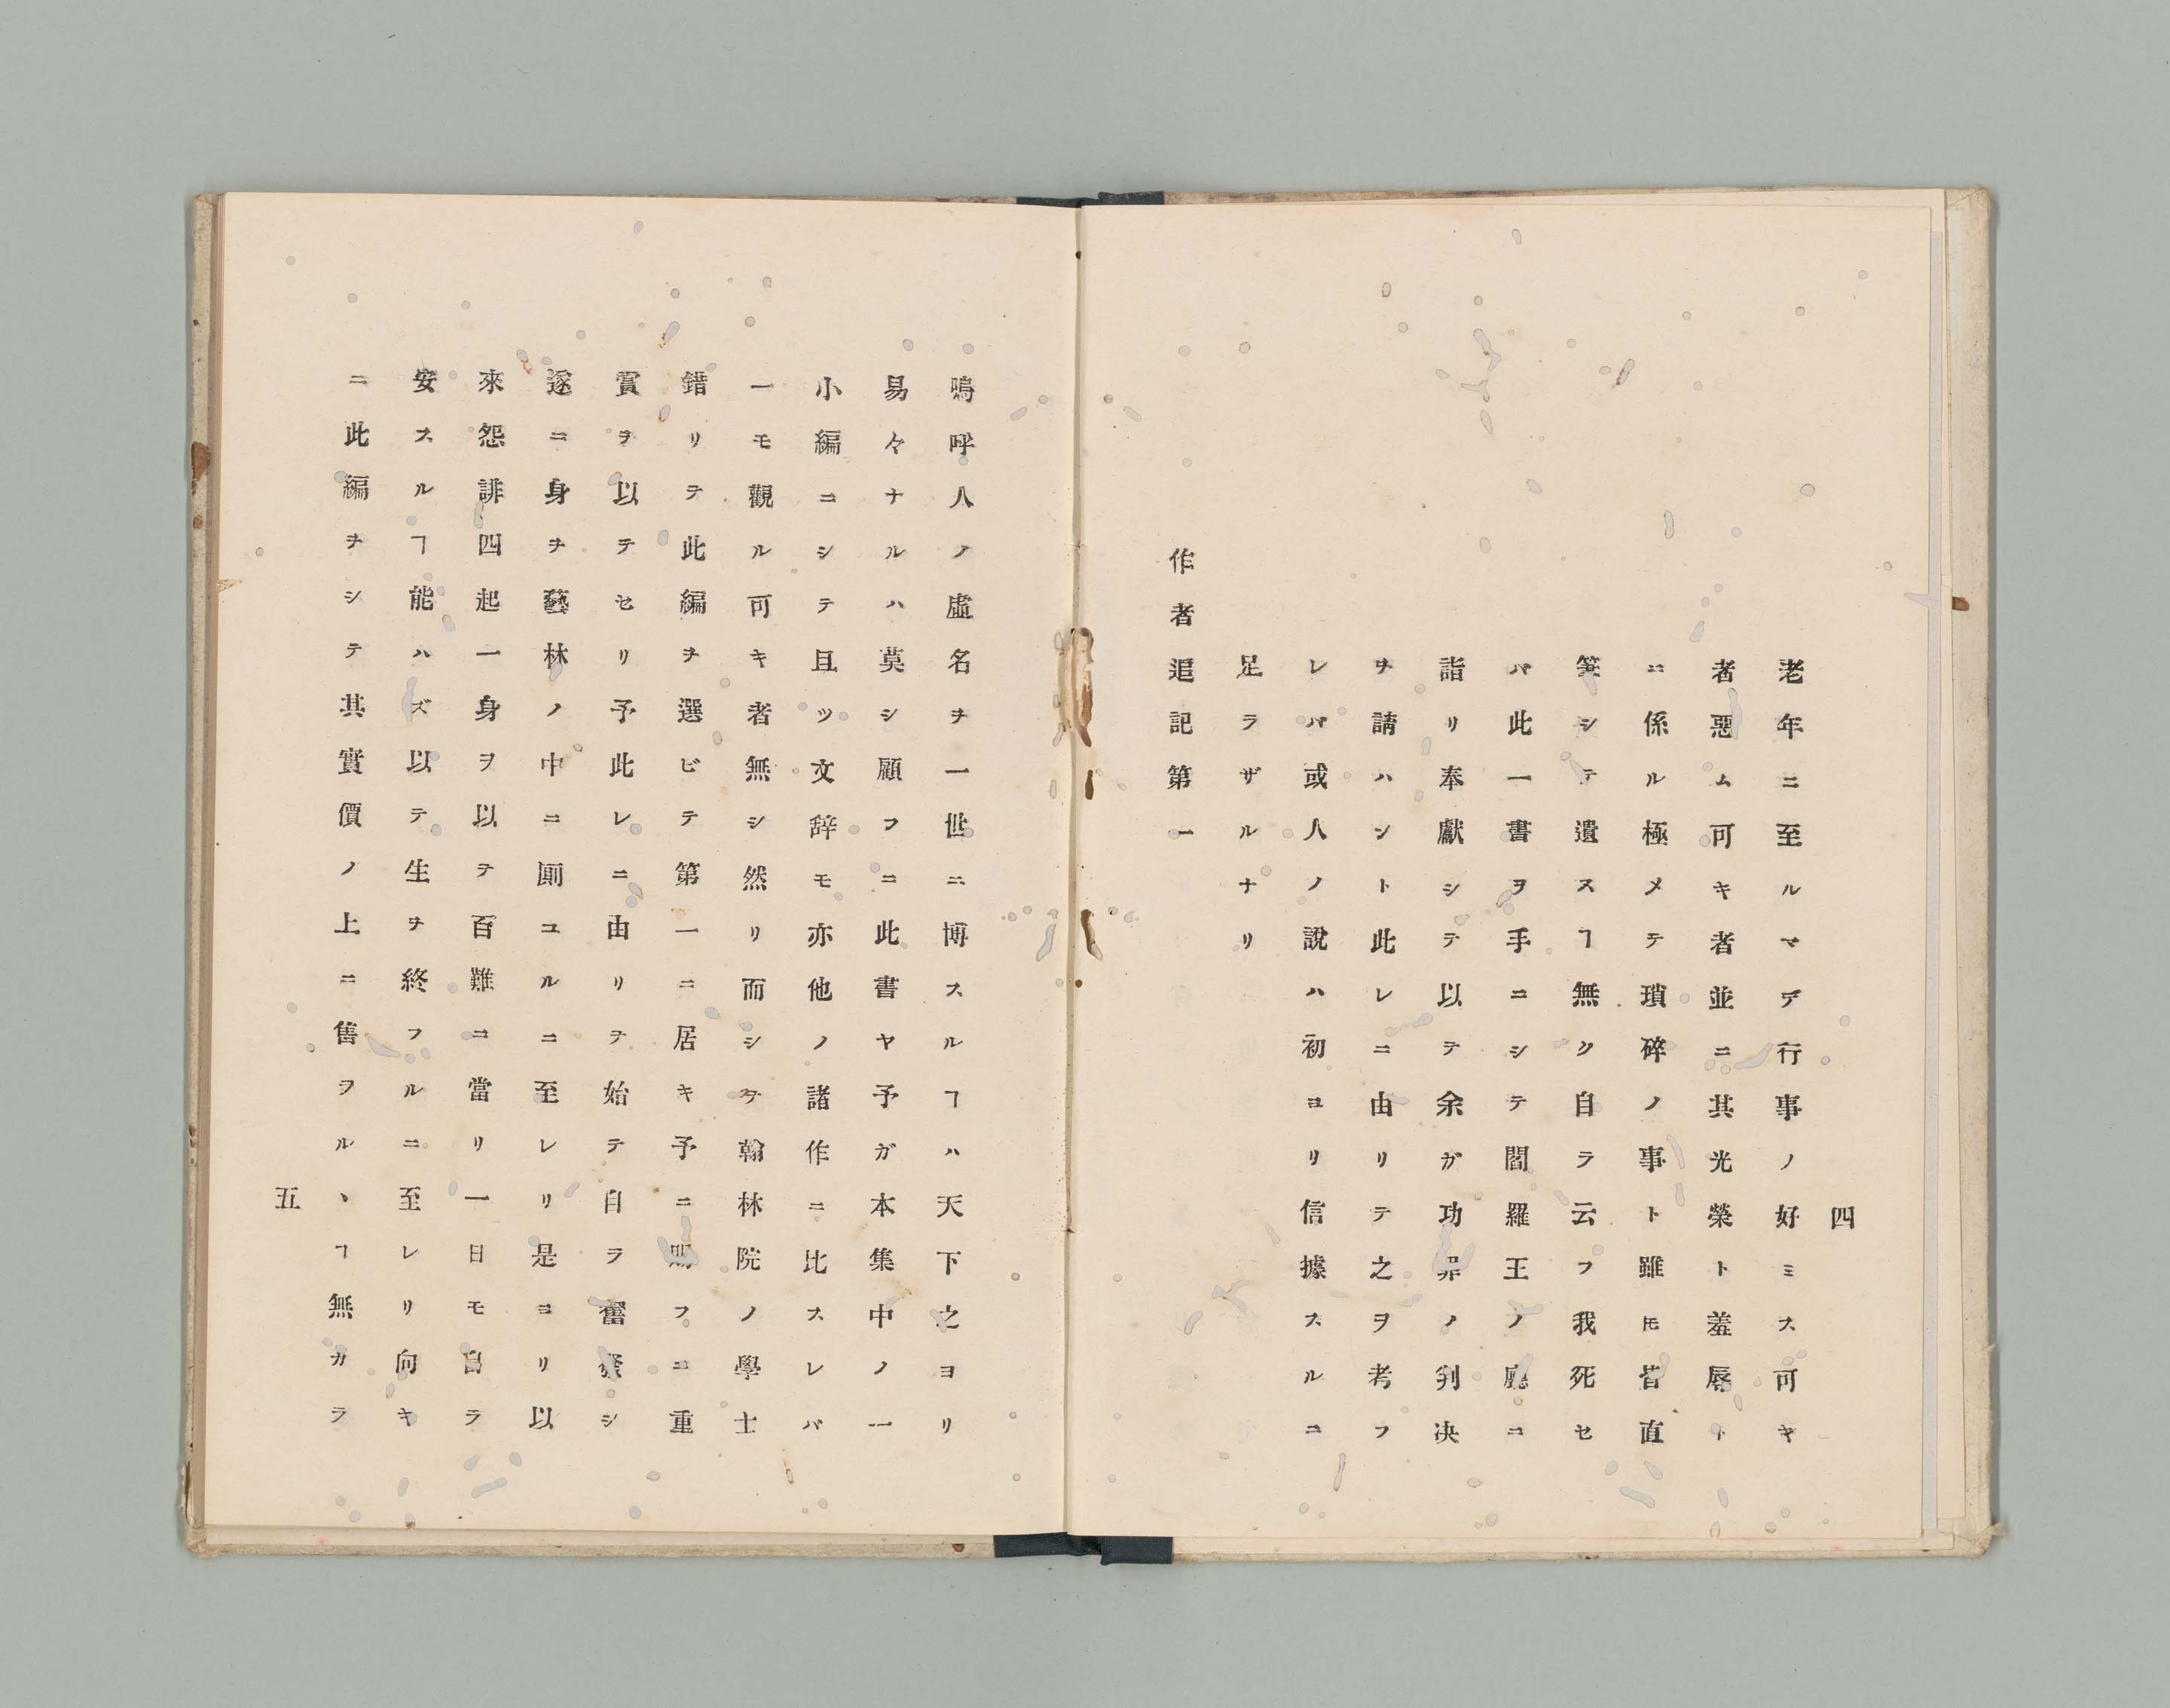 四
老年ニ至ルマデ行事ノ好ミス可キ
者惡ム可キ者並ニ其光榮ト羞辱ト
ニ係ル極メテ瑣碎ノ事ト雖モ皆直
筆シテ遺スヿ無ク自ラ云フ我死セ
バ此一書ヲ手ニシテ閻羅王ノ廳ニ
詣リ奉獻シテ以テ余ガ功罪ノ判决
ヲ請ハント此レニ由リテ之ヲ考フ
レバ或人ノ說ハ初ヨリ信據スルニ
足ラザルナリ
作者追記第一
嗚呼人ノ虛名ヲ一世ニ博スルヿハ天下之ヨリ
易々ナルハ莫シ顧フニ此書ヤ予ガ本集中ノ一
小編ニシテ且ツ文辞モ亦他ノ諸作ニ比スレバ
一モ觀ル可キ者無シ然リ而シテ翰林院ノ學士
錯リテ此編ヲ選ビテ第一ニ居キ予ニ賜フニ重
賞ヲ以テセリ予此レニ由リテ始テ自ラ奮發シ
遂ニ身ヲ藝林ノ中ニ厠ユルニ至レリ是ヨリ以
來怨誹四起一身ヲ以テ百難ニ當リ一日モ自ラ
安スルヿ能ハズ以テ生ヲ終フルニ至レリ向キ
ニ此編ヲシテ其實價ノ上ニ售ヲルヽヿ無カラ
五